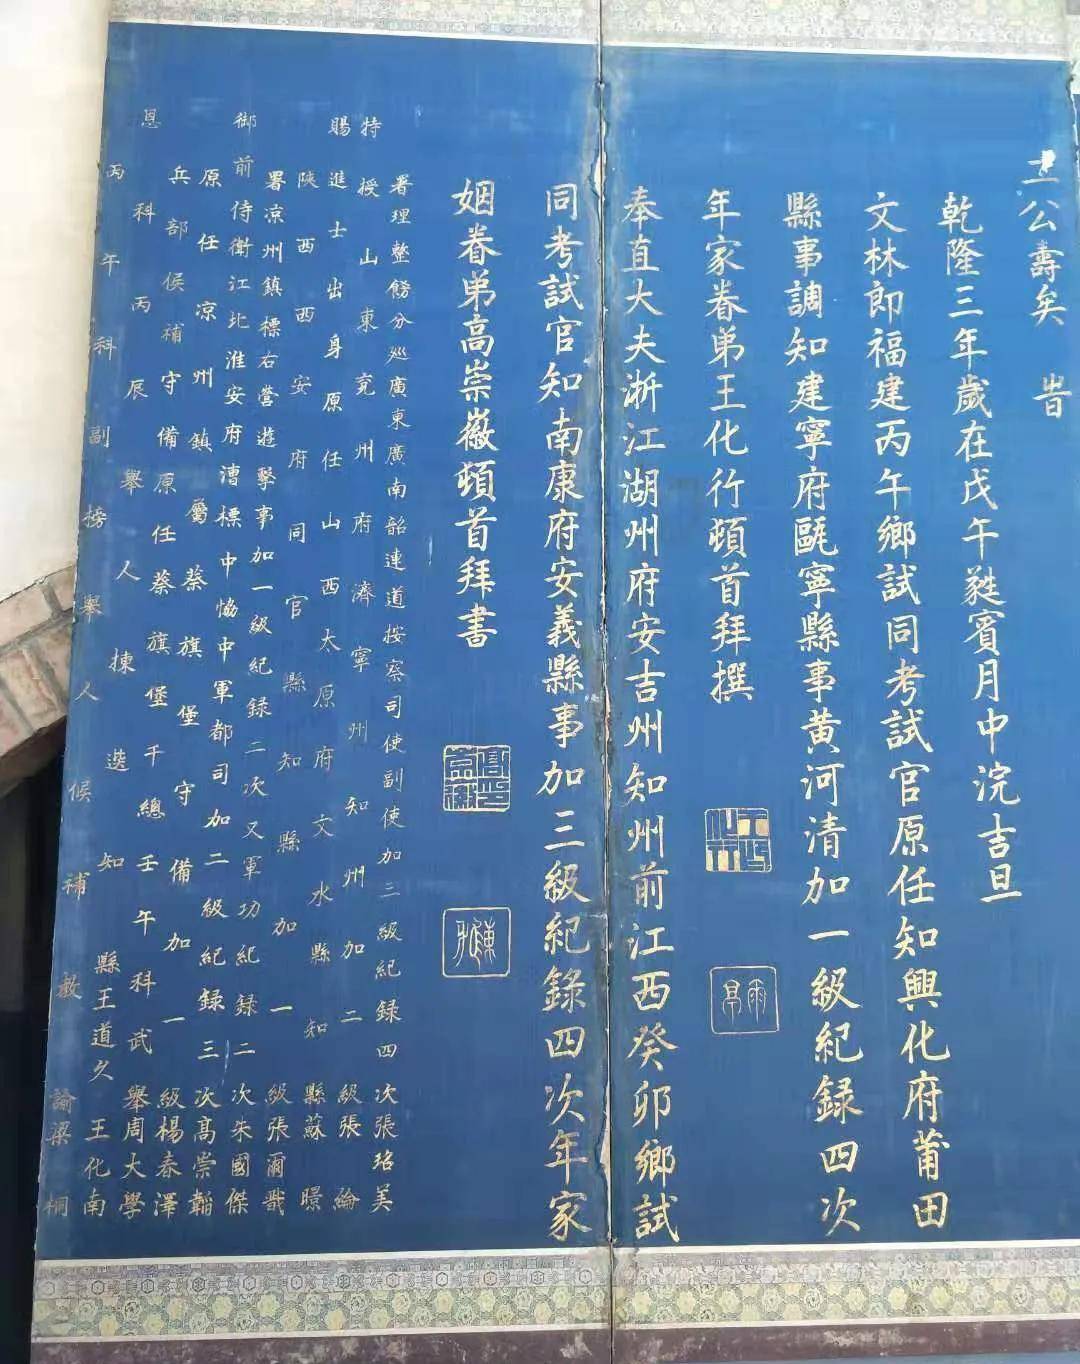 公壽矣 旹
乾隆三年歲在戊午蕤賓月中浣吉旦
文林郎福建丙午鄉試同考試官原任知興化府莆田
縣事調知建寧府甌寧縣事黄河清加一級紀録四次
年家眷弟王化行頓首拜撰
奉直大夫浙江湖州府安吉州知州前江西癸卯鄉試
同考試官知南康府安義縣事加三級紀錄四次年家
姻眷弟高崇徽頓首拜書
署理整飭分廵廣東廣南韶連道按察司使副使加三級紀録四次張珆美
特授山東兖州府濟寧州知州加二級張綸
賜進士出身原任山西太原府文水縣知縣蘇暻
陝西西安府同官縣知縣加一級張爾戩
署凉州鎮標右營遊擊事加一級紀録二次又軍功紀録二次朱國傑
御前侍衛江北淮安府漕標中協中軍都司加二級紀録三次髙崇韜
原任凉州鎮屬蔡旗堡守備加一級楊春澤
兵部候補守備原任蔡旗堡千總壬午科武舉周大學
恩科丙辰舉人揀選知縣王道久 王化南
丙午科副榜舉人候補教諭梁桐